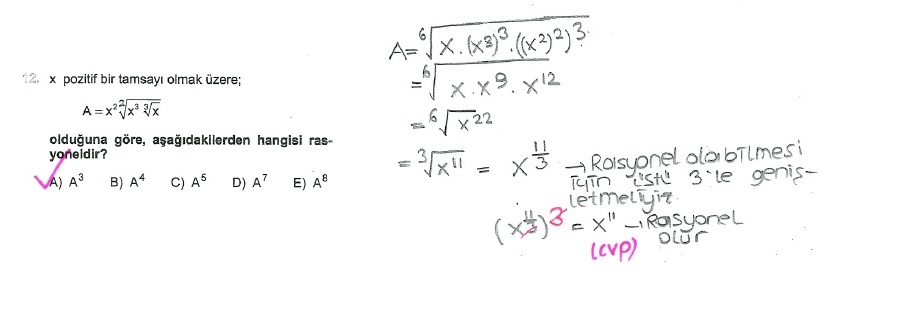 12. x pozitif bir tamsayı olmak üzere;
A = x² ²√(x³ ³√x)
olduğuna göre, aşağıdakilerden hangisi ras-
yoneldir?
A) A³ B) A⁴ C) A⁵ D) A⁷ E) A⁸
A = ⁶√(x.(x³)³.((x²)²)³)
= ⁶√(x.x⁹.x¹²)
= ⁶√x²²
= ³√x¹¹ = x^(11/3) → Rasyonel olabilmesi
için üstü 3'le geniş-
letmeliyiz
(x^(11/3))³ = x¹¹ → Rasyonel
olur
(cvp)